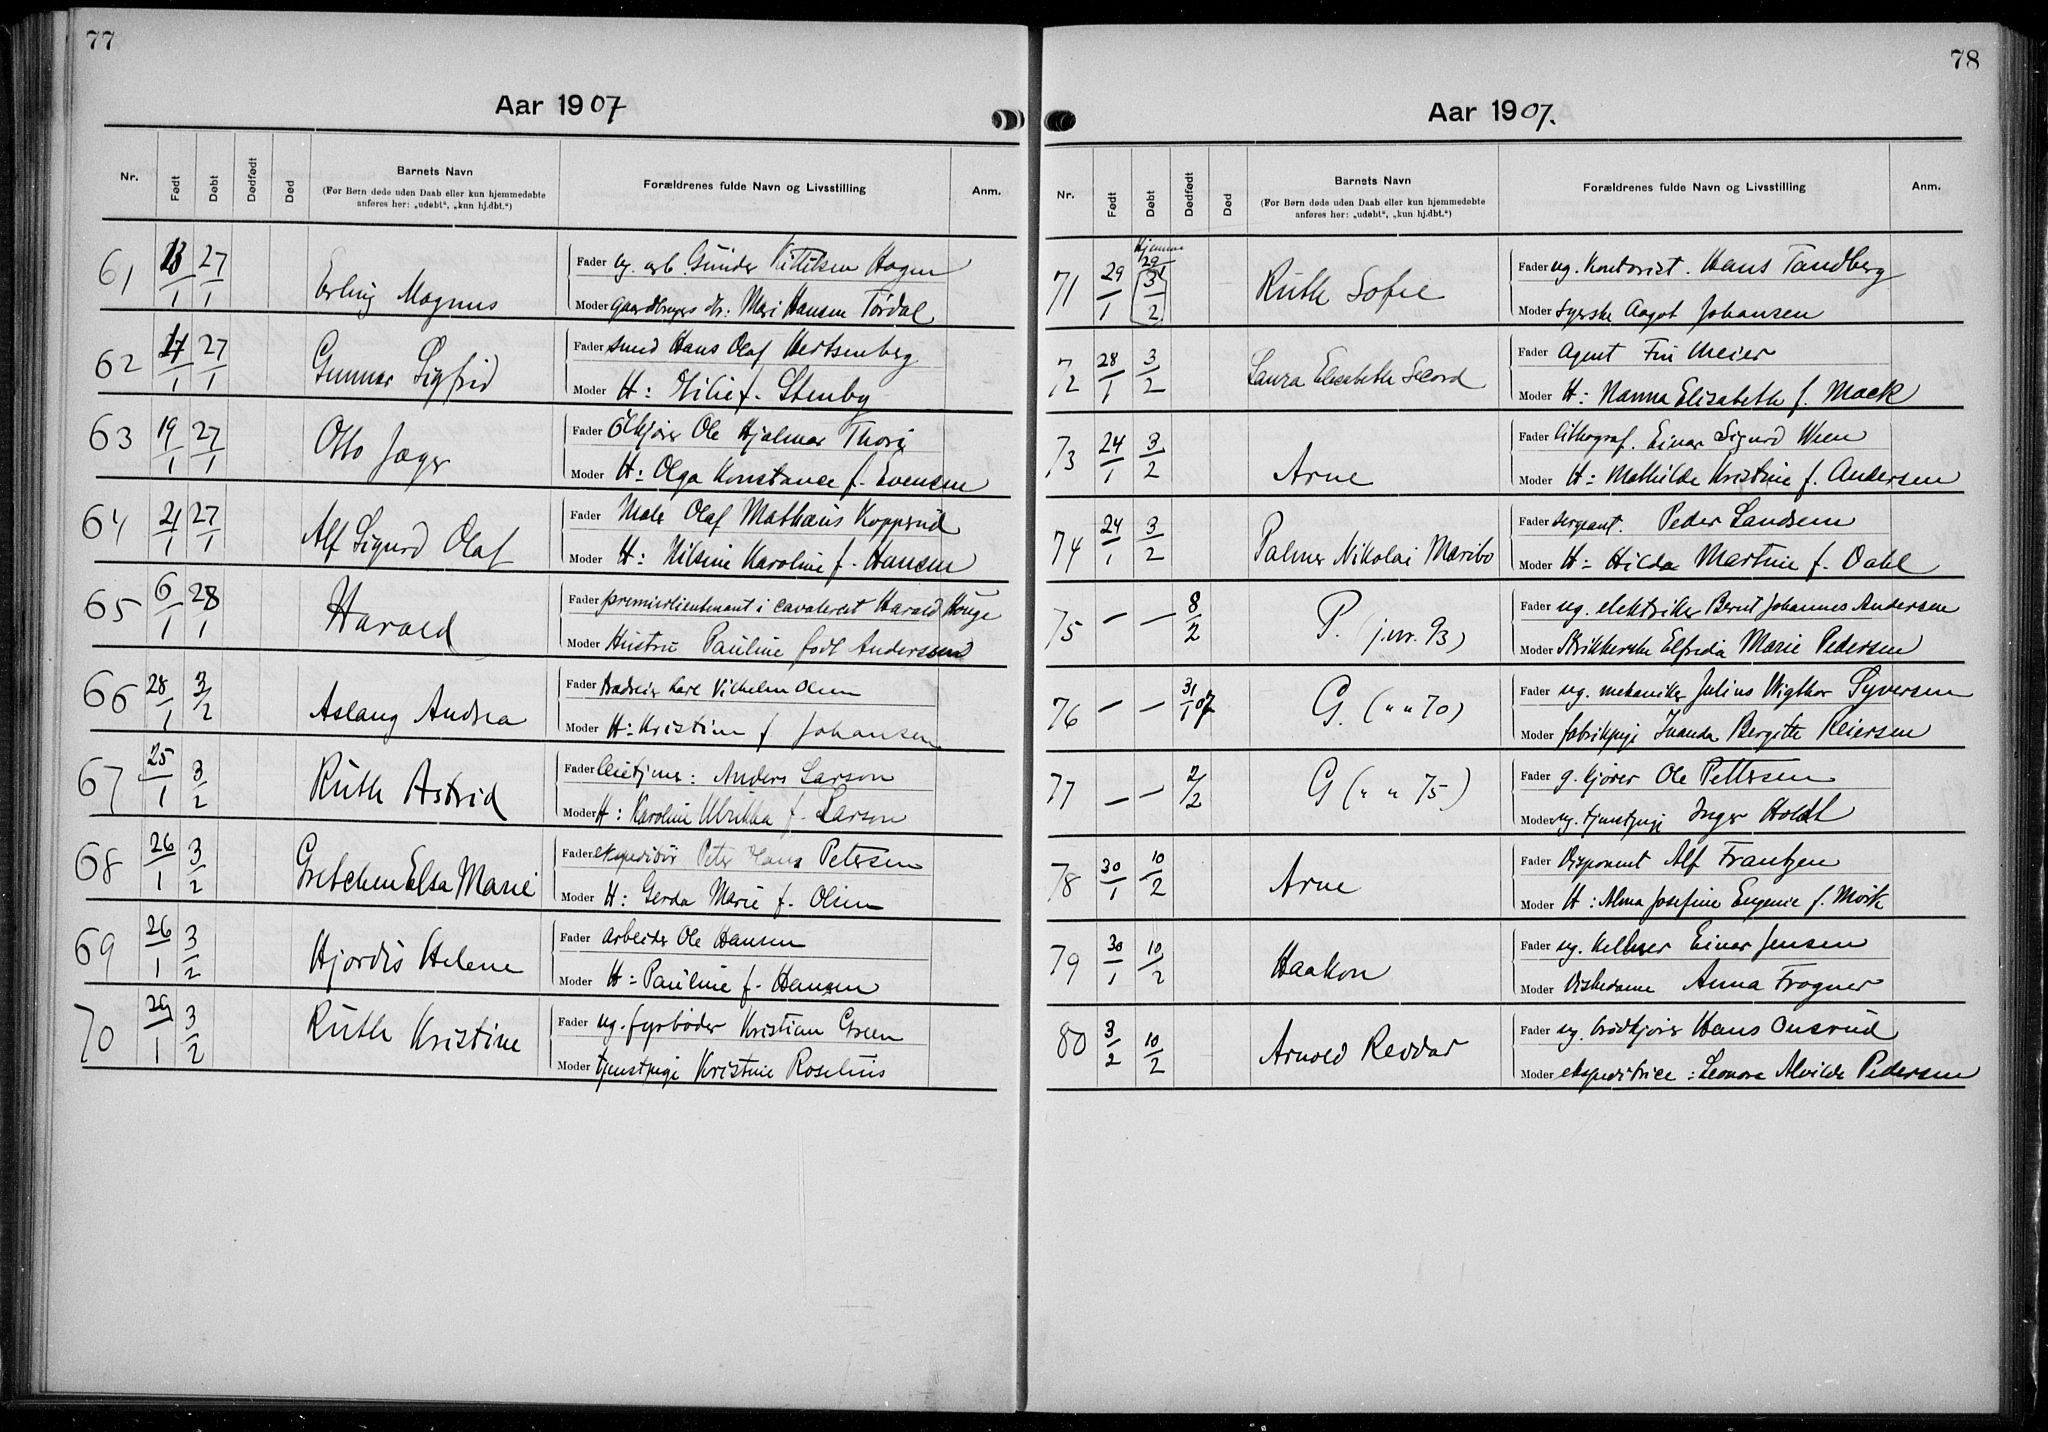 77
Aar 1907
Nr.
Født
Døbt
Dødfødt
Død
Barnets Navn
(For Børn døde uden Daab eller kun hjemmedøbte
anføres her: „udøbt“, „kun hj.dbt.“)
Forældrenes fulde Navn og Livsstilling
Anm.
61 13/1 27/1 Erling Magnus
Fader ug. arb. Gunder Kittilsen Hagen
Moder gaardbrugers dtr: Mari Hansen Tørdal
62 17/1 27/1 Gunnar Sigfrid
Fader smed Hans Olaf Hertsenberg
Moder H: f. Stenby
63 19/1 27/1 Otto Jæger
Fader Ølkjører Ole Hjalmar
Moder H: Olga Konstance f. Evensen
64 21/1 27/1 Alf Sigurd Olaf
Fader Maler Olaf Mathæus Kopperud
Moder H: Nilsine Karoline f. Hansen
65 6/1 28/1 Harald
Fader premierlieutenant i cavaleriet Harald Houge
Moder Hustru Pauline født Anderssen
66 28/1 3/2 Aslaug Andrea
Fader Karl Vilhelm Olsen
Moder H: Kristine f. Johansen
67 25/1 3/2 Ruth Astrid
Fader Anders Larson
Moder H: Karoline Ulrikka f. Larson
68 26/1 3/2 Gretchen Elsa Marie
Fader ekspeditør Peter Hans Petersen
Moder H: Gerda Marie f. Olsen
69 26/1 3/2 Hjordis Helene
Fader arbeider Ole Hansen
Moder H: Pauline f. Hansen
70 29/1 3/2 Ruth Kristine
Fader ug. fyrbøder Kristian Green
Moder tjenstpige Kristine Roselius
78
Aar 1907.
Nr.
Født
Døbt
Dødfødt
Død
Barnets Navn
(For Børn døde uden Daab eller kun hjemmedøbte
anføres her: „udøbt“, „kun hj.dbt.“)
Forældrenes fulde Navn og Livsstilling
Anm.
71 29/1 Hjemme 29/1 (3/2) Ruth Sofie
Fader ug. Kontorist. Hans Tandberg
Moder Syerske Aagot Johansen
72 28/1 3/2 Laura Elisabeth Secord
Fader Agent Fin Meier
Moder H: Nanna Elizabeth f. Mack
73 24/1 3/2 Arne
Fader Lithograf. Einar Sigurd Wien
Moder H: Mathilde Kristine f. Andersen
74 24/1 3/2 Palmer Nikolai Maribo
Fader sergeant. Peder Landsem
Moder H: Hilda Martine f. Dahl
75 — — 8/2 P. (j.nr. 93)
Fader ug. elektriker Bernt Johannes Andersen
Moder Strikkerske Elfrida Marie Pedersen
76 — — 31/1 07 G. („ „ 70)
Fader ug. mekaniker Julius Wigthor Syversen
Moder fabrikpige Inanda Bergitte Reiersen
77 — — 2/2 G („ „ 75)
Fader g. kjører Ole Pettersen
Moder ug. tjenstpige Inger Holdt
78 30/1 10/2 Arne
Fader Disponent Alf Frantzen
Moder H: Alma Josefine Eugenie f. Mørk
79 30/1 10/2 Haakon
Fader ug. kelner Einar Jensen
Moder Diskedame Anna Frogner
80 3/2 10/2 Arnold Reddar
Fader ug. brødkjører Hans Onsrud
Moder ekspeditrice: Leonora Alvilde Pedersen